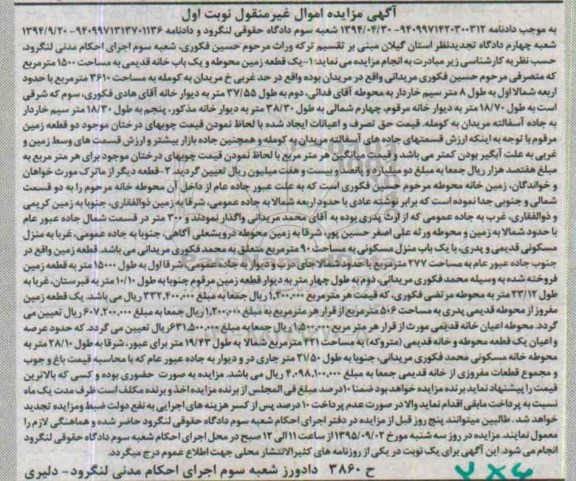 آگهی مزایده اموال غیرمنقول نوبت اول
به موجب دادنامه ۹۴۰۹۹۷۱۴۲۰۳۰۰۳۱۲ ۱۳۹۴/۰۴/۳۰ شعبه سوم دادگاه حقوقی لنگرود و دادنامه ۹۴۰۹۹۷۱۳۱۳۷۰۱۱۳۶ -۱۳۹۴/۹/۲۰
شعبه چهارم دادگاه تجدیدنظر استان گیلان مبنی بر تقسیم ترکه وراث مرحوم حسین فکوری، شعبه سوم اجرای احکام مدنی لنگرود،
حسب نظر به کارشناسی زیر مبادرت به انجام مزایده می نماید: ۱-یک قطعه زمین محوطه و یک باب خانه قدیمی به مساحت ۱۵۰۰ مترمربع
که متصرفی مرحوم حسین فکوری مریدانی واقع در مریدان بوده واقع در حد غربی خ مریدان به کومله به مساحت ۳۶۱۰ مترمربع با حدود
اربعه شمالا اول به طول ۸ متر سیم خاردار به محوطه آقای فدائی، دوم به طول ۳۷/۵۵ متر به دیوار خانه آقای هادی فکوری، سوم که شرقی
است به طول ۱۸/۷۰ متر به دیوار خانه مرقوم، چهارم شمالی به طول ۳۸/۳۰ متر به دیوار خانه مذکور، پنجم به طول ۱۸/۳۰ متر سیم خاردار
به جاده آسفالته مریدان به کومله. قیمت حق تصرف و اعیانات ایجاد شده با لحاظ نمودن قیمت چوبهای درختان موجود دو قطعه زمین
مرقوم با توجه به اینکه ارزش قسمتهای جاده های آسفالته مریدان به کومله و همچنین جاده بازار بیشتر و ارزش قسمت های وسط زمین و
غربی به علت آبگیر بودن کمتر می باشد و قیمت میانگین هر متر مربع با لحاظ نمودن قیمت چوبهای درختان موجود برای هر متر مربع به
مبلغ هفتصد هزار ریال جمعا به مبلغ دو میلیارد و پانصد و بیست و هفت میلیون ریال تعیین گردید. ۲-قطعه دیگر از ماترک مورث خواهان
و خواندگان، زمین خانه محوطه مرحوم حسین فکوری است که به علت عبور جاده عام از داخل آن محوطه خانه مرحوم را به دو قسمت
شمالی و جنوبی جدا نموده است که برابر نوشته عادی با حدود اربعه شمالا به جاده عمومی، شرقا به زمین ذوالفقاری، جنوبا به زمین کریمی
و ذوالفقاری، غرب به جاده عمومی که از ارث پدری بوده به آقای محمد مریدانی واگذار نمودند و ۳۰۰ متر در قسمت شمال جاده عبور عام
با حدود شمالا به زمین و محوطه ورثه علی اصغر حسین پور، شرقا به زمین محوطه درویشعلی آگاهی، جنوبا به جاده عمومی، غربا به منزل
مسکونی قدیمی و پدری، با یک باب منزل مسکونی به مساحت ۹۰ مترمربع متعلق به محمد فکوری مریدانی می باشد. قطعه زمین واقع در
جنوب جاده عبور عام به مساحت ۲۷۷ مترمربع با حدود شمالا جای درب و دیوار به جاده عمومی، شرقا اول به طول ۱۵۰۰۰ متر به قطعه زمین
فروخته شده به وسیله محمد فکوری مریدانی، دوم به طول چهار متر به دیوار قطعه زمین مرقوم جنوبا به طول ۱۰/۱۰ متر به قبرستان، غربا به
طول ۲۳/۱۲ متر به محوطه مرتضی فکوری، که قیمت هر مترمربع ۱,۲۰۰,۰۰۰ ریال جمعا به مبلغ ۳۳۲,۴۰۰,۰۰۰ ریال می باشد. یک قطعه زمین
مفروز از محوطه قدیمی پدری به مساحت ۵۰۶ مترمربع از قرار هر مترمربع به مبلغ ۱,۲۰۰,۰۰۰ ریال جمعا به مبلغ ۶۰۷,۲۰۰,۰۰۰ ریال تعیین می
گردد. محوطه اعیان خانه قدیمی مورث از قرار هر متر مربع ۱,۵۰۰,۰۰۰ ریال جمعا به مبلغ ۶۳۱,۵۰۰,۰۰۰ ریال تعیین می گردد. که حدود عرصه
و اعیان یک قطعه محوطه و خانه قدیمی (متروکه) به مساحت ۴۲۱ مترمربع شمالا به طول ۱۹/۴۳ متر برای عبور، شرقا به طول ۲۸/۱۰ متر به
محوطه خانه مسکونی محمد فکوری مریدانی، جنوبا به طول ۲۷/۵۰ متر جاری در و دیوار به جاده عبور عام که با محاسبه قیمت باغ و جوب
و مجموع قطعات مفروزی از خانه قدیمی جمعا به مبلغ ۴,۰۹۸,۱۰۰,۰۰۰ ریال می باشد. مزایده به صورت حضوری بوده و کسی که بالاترین
قیمت را پیشنهاد نماید برنده مزایده خواهد بود ضمنا ۱۰درصد مبلغ فی المجلس از برنده مزایده اخذ و برنده مکلف است ظرف مدت یک ماه
نسبت به پرداخت مابقی اقدام نماید والا در صورت عدم پرداخت ۱۰ درصد پس از کسر هزینه های اجرایی به نفع دولت ضبط و مزایده تجدید
خواهد شد. طالبین میتوانند پنج روز قبل از مزایده در دفتر اجرای احکام شعبه سوم دادگاه حقوقی لنگرود حاضر شده و هماهنگی لازم را
معمول نمایند. مزایده در روز سه شنبه مورخ ۱۳۹۵/۰۹/۰۲ از ساعت ۱۱ الی ۱۲ صبح در محل اجرای احکام شعبه سوم دادگاه حقوقی لنگرود
انجام می شود. این آگهی برای یک نوبت در یکی از روزنامه های کثیرالانتشار محلی جهت اطلاع عموم درج میگردد.
ح ۳۸۶۰ دادورز شعبه سوم اجرای احکام مدنی لنگرود- دلیری